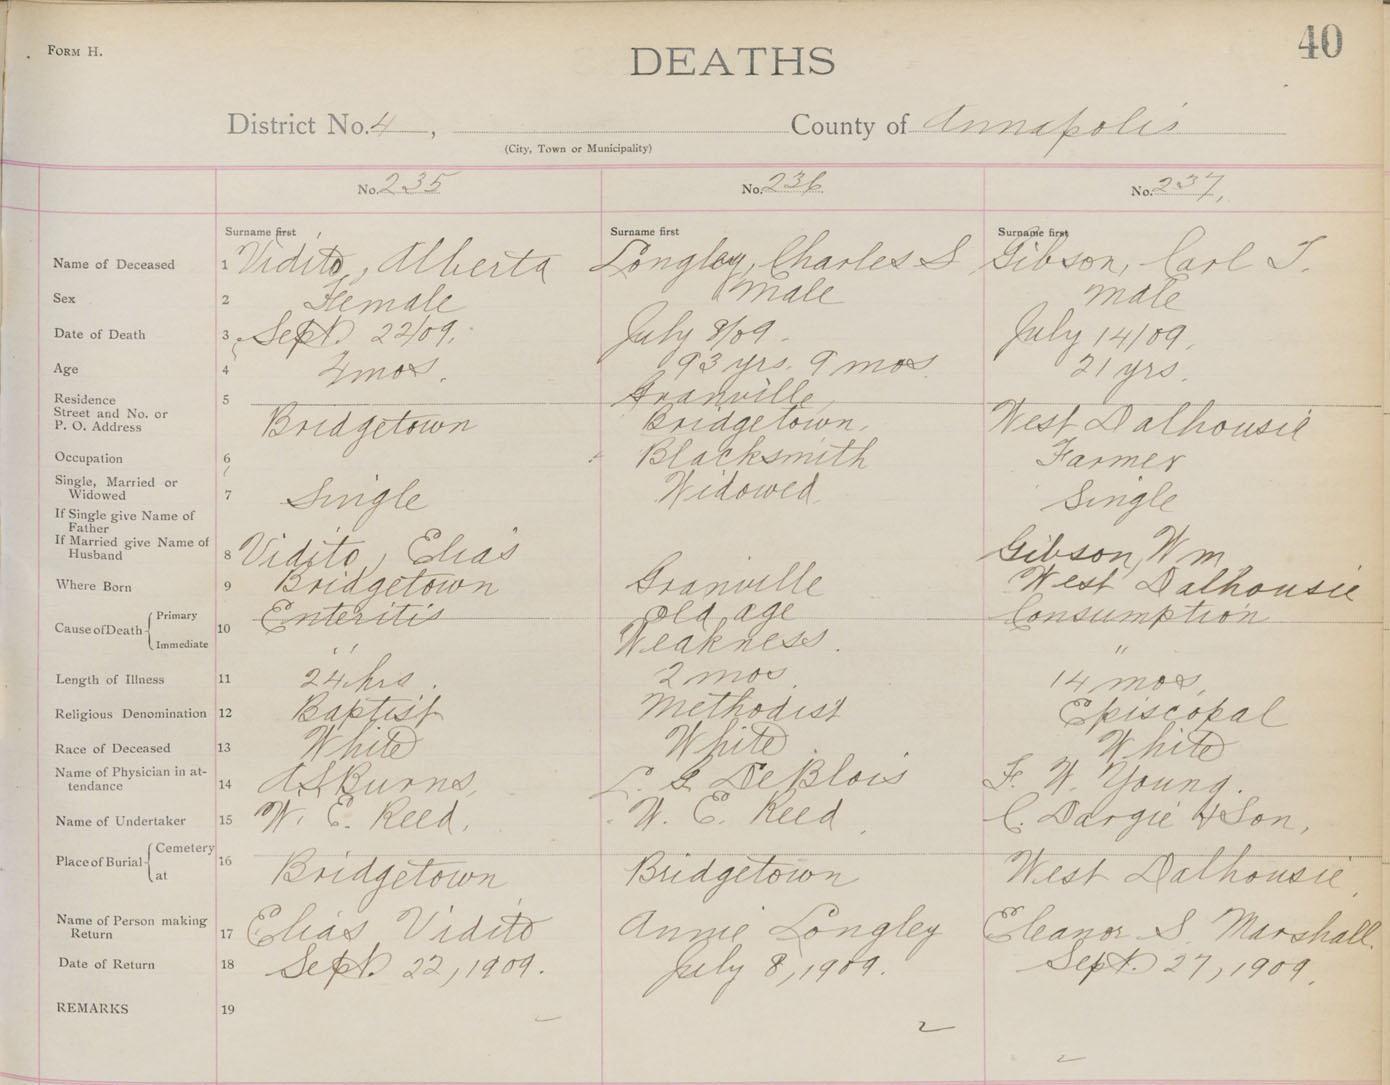 FORM H.
DEATHS
40
District No. 4, County of Annapolis
(City, Town or Municipality)
No. 235 No. 236 No. 237,
Surname first Surname first Surname first
Name of Deceased 1 Vidito, Alberta Longley, Charles S Gibson, Carl T.
Sex 2 Female Male Male
Date of Death 3 Sept. 22/09. July 8/09. July 14/09.
Age 4 4 mos. 93 yrs. 9 mos. 21 yrs.
Residence 5 Granville
Street and No. or
P. O. Address Bridgetown Bridgetown, West Dalhousie
Occupation 6 Blacksmith Farmer
Single, Married or
Widowed 7 Single Widowed Single
If Single give Name of
Father
If Married give Name of
Husband 8 Vidito, Elias Gibson, Wm
Where Born 9 Bridgetown Granville West Dalhousie
Cause of Death Primary 10 Enteritis Old age Consumption
Immediate " Weakness. "
Length of Illness 11 24 hrs. 2 mos. 14 mos.
Religious Denomination 12 Baptist Methodist Episcopal
Race of Deceased 13 White White. White
Name of Physician in at-
tendance 14 A.S. Burns, L. G. DeBlois F. W. Young.
Name of Undertaker 15 W. E. Reed. W. E. Reed, C. Dargie & Son,
Place of Burial Cemetery 16
at Bridgetown Bridgetown West Dalhousie,
Name of Person making
Return 17 Elias Vidito Annie Longley Eleanor S. Marshall.
Date of Return 18 Sept. 22, 1909. July 8, 1909. Sept. 27, 1909.
REMARKS 19